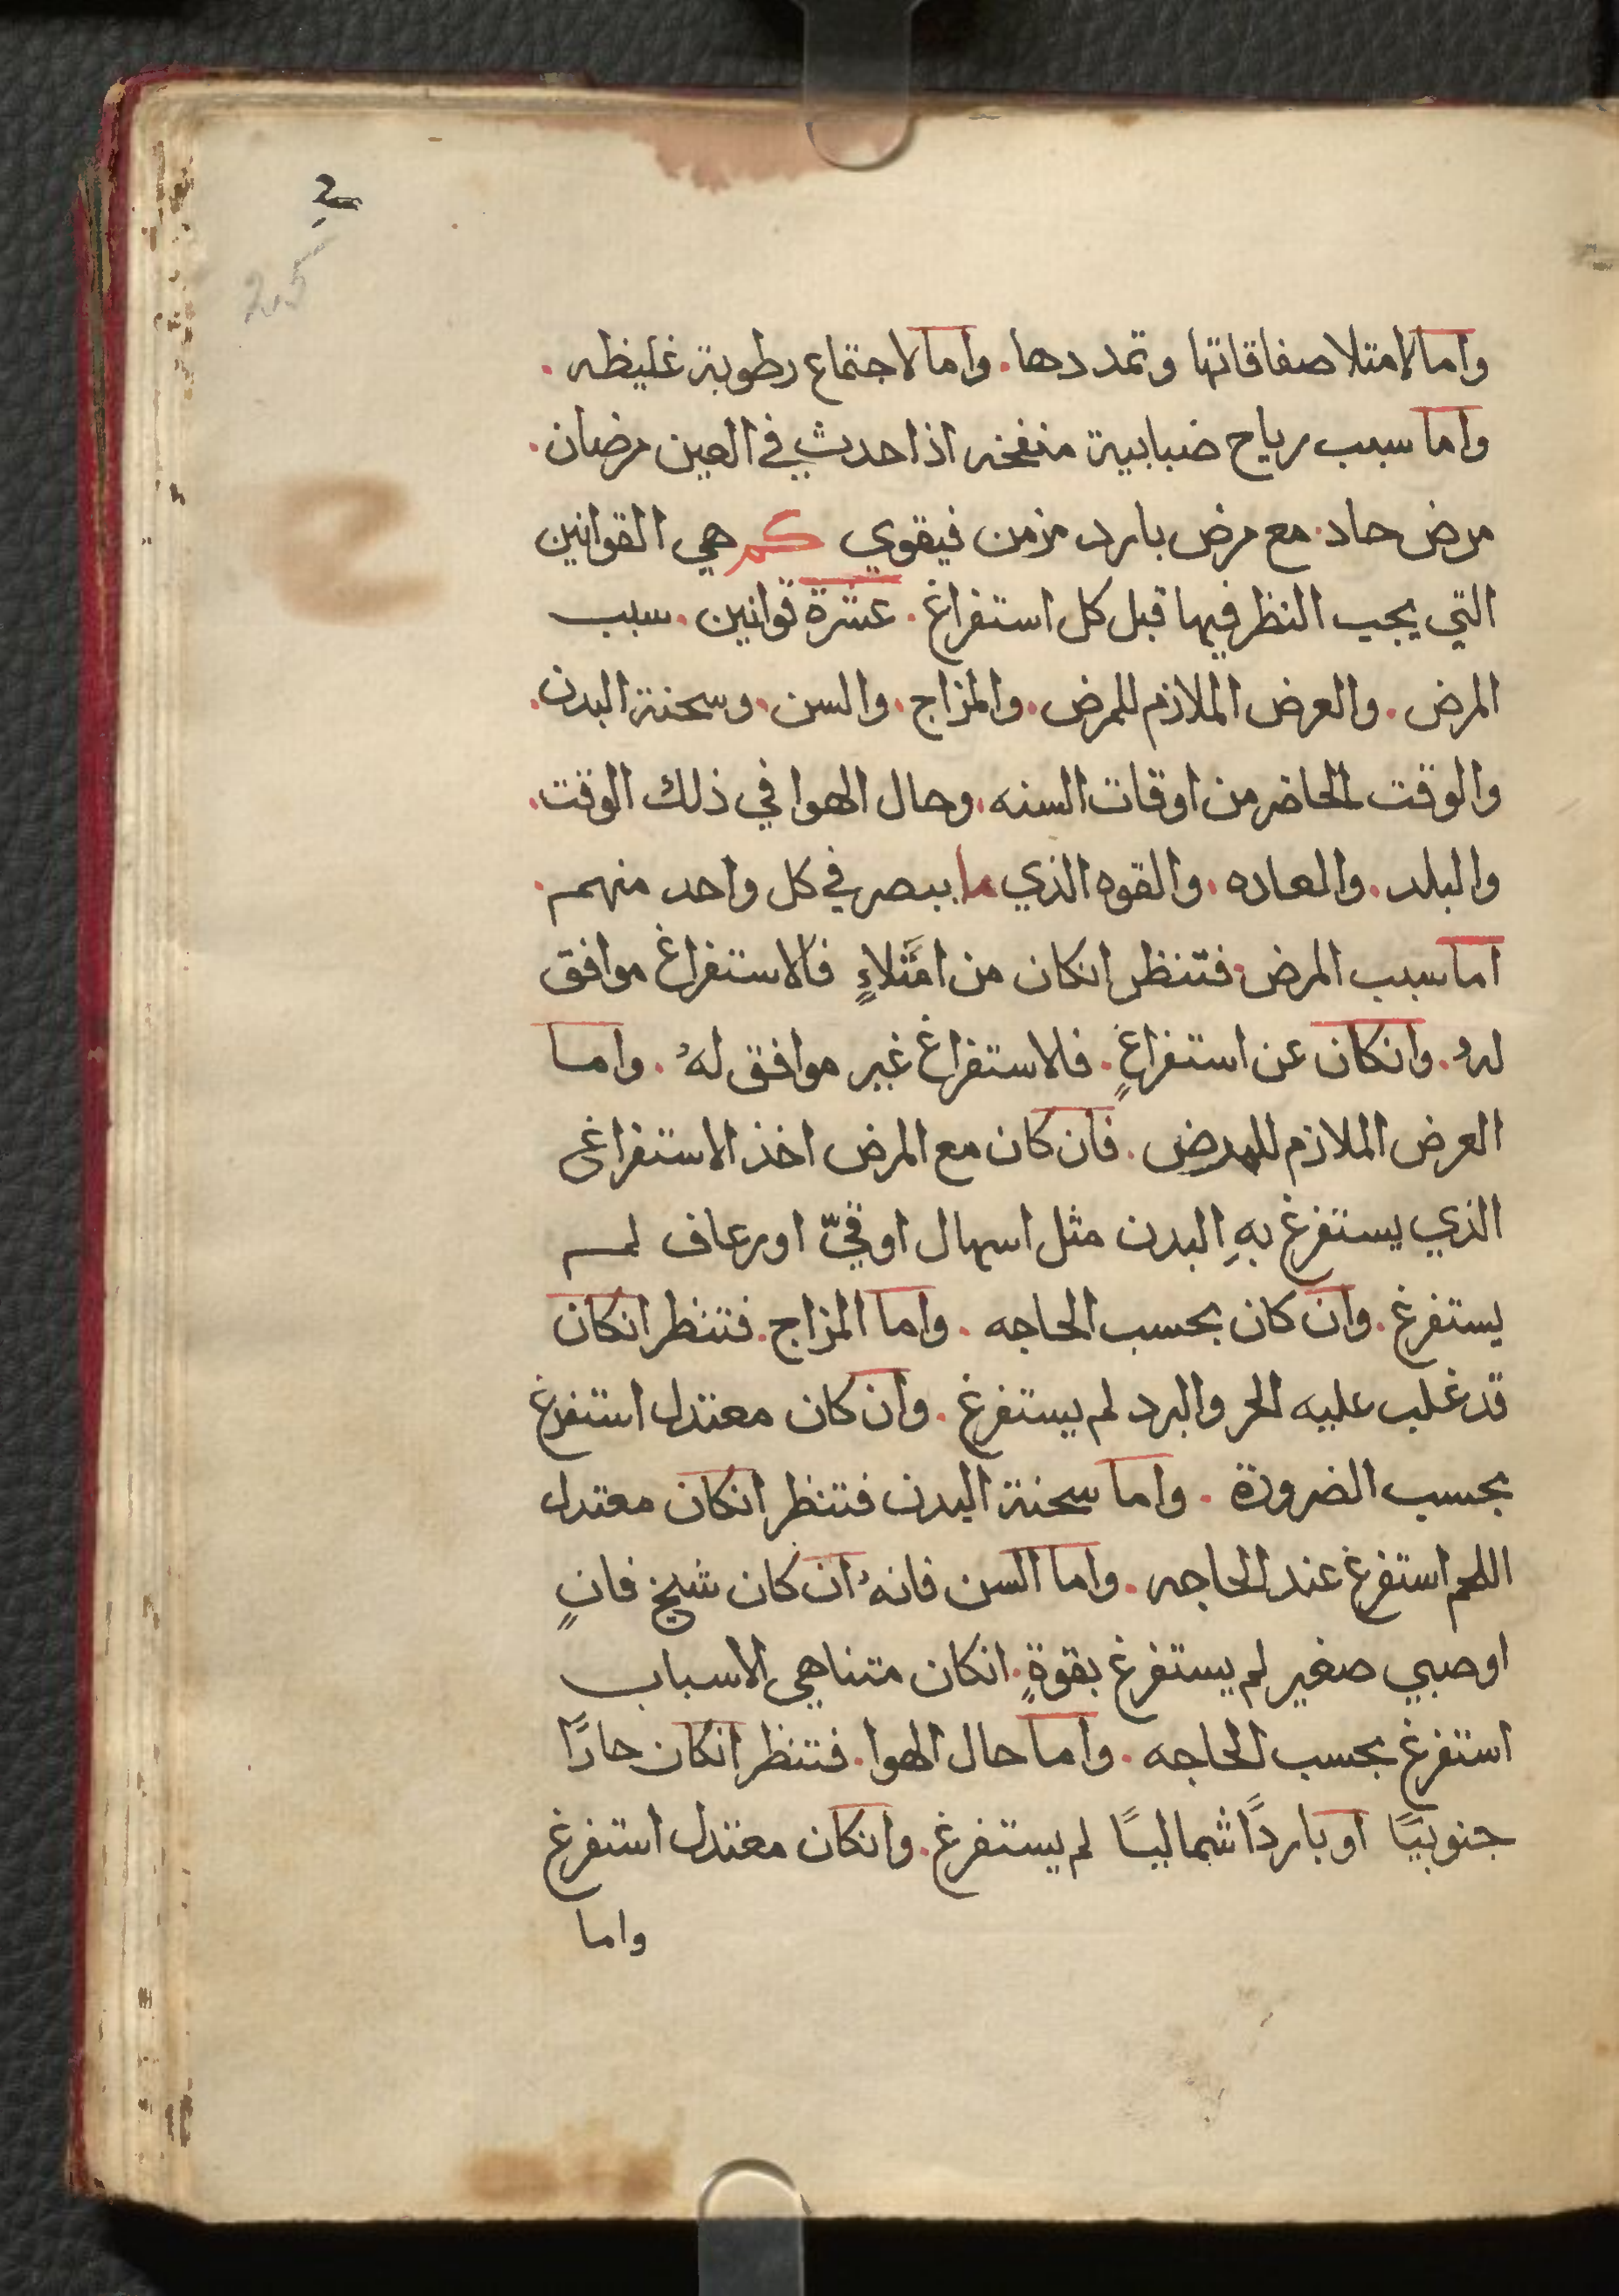 205
واما لامتلا صفاقاتها وتمددها. واما لاجتماع رطوبة غليظه.
واما سبب رياح ضبابية منفخه اذا حدث في العين مرضان.
مرض حاد. مع مرض بارد مزمن فيقوي كم هي القوانين
التي يجب النظر فيها قبل كل استفراغ. عشرة قوانين. سبب
المرض. والعرض الملازم للمرض. والمزاج. والسن. وسحنة البدن.
والوقت الحاضر من اوقات السنه. وحال الهوا في ذلك الوقت.
والبلد. والعاده. والقوه الذي ما يبصر في كل واحد منهم.
اما سبب المرض. فتنظر انكان من امتلاءٍ فالاستفراغ موافق
لهُ. وانكان عن استفراغٍ. فلاستفراغ غير موافق لهُ. واما
العرض الملازم للمرض. فان كان مع المرض اخذ الاستفراغ
الذي يستفرغ بهِ البدن مثل اسهال او قيّ او رعاف لم
يستفرغ. وان كان بحسب الحاجه. واما المزاج. فتنظر انكان
قد غلب عليه الحر والبرد لم يستفرغ. وان كان معتدل استفرغ
بحسب الضرورة. واما سحنة البدن فتنظر انكان معتدل
اللحم استفرغ عند الحاجه. واما السن فانهُ ان كان شيخ فانٍ
او صبي صغير لم يستفرغ بقوةٍ. انكان متناهي الاسباب
استفرغ بحسب الحاجه. واما حال الهوا. فتنظر انكان حارًا
جنوبيًا او باردًا شماليًا لم يستفرغ. وانكان معتدل استفرغ
واما